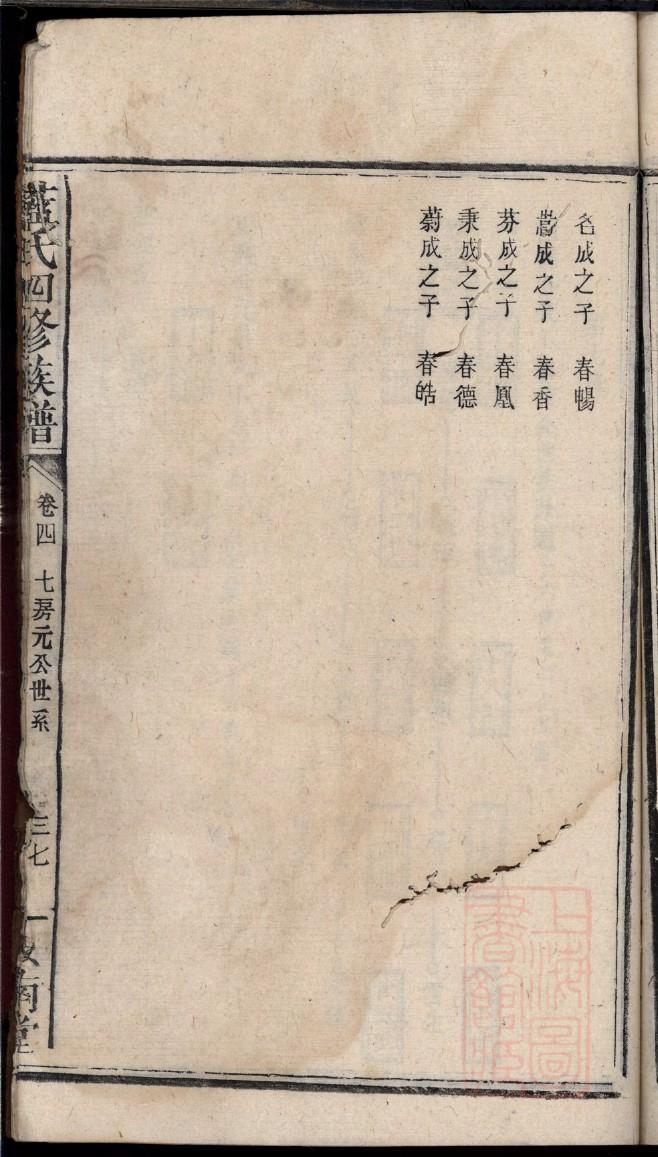 名成之子 春暢
嵩成之子 春香
芬成之子 春凰
秉成之子 春德
蒭成之子 春皓
氏四修族譜
卷四 七房元公世系
三七
上海圖
書館藏